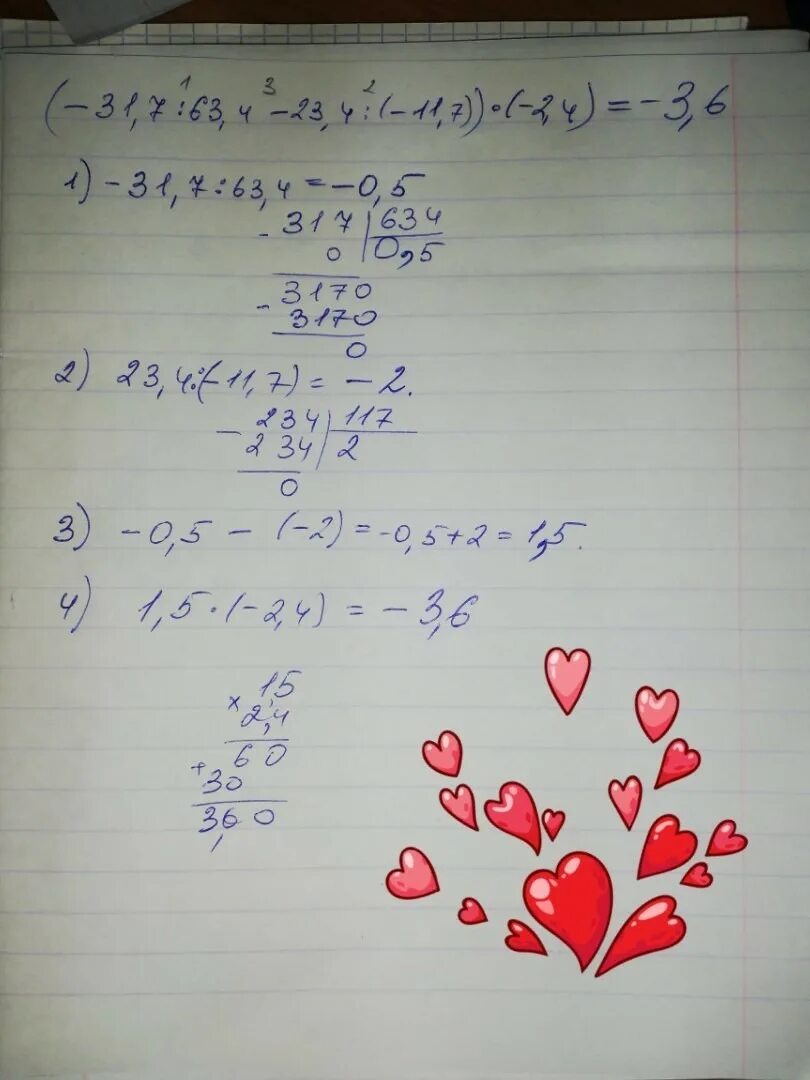 (-31,7 :¹ 63,4 -³ 23,4 :² (-11,7)) · (-2,4) = -3,6
1) -31,7 : 63,4 = -0,5
- 317 | 634
0 | 0,5
- 3170
3170
0
2) 23,4 : (-11,7) = -2.
- 234 | 117
234 | 2
0
3) -0,5 - (-2) = -0,5 + 2 = 1,5.
4) 1,5 · (-2,4) = -3,6
x 1,5
2,4
+ 60
30
3,60